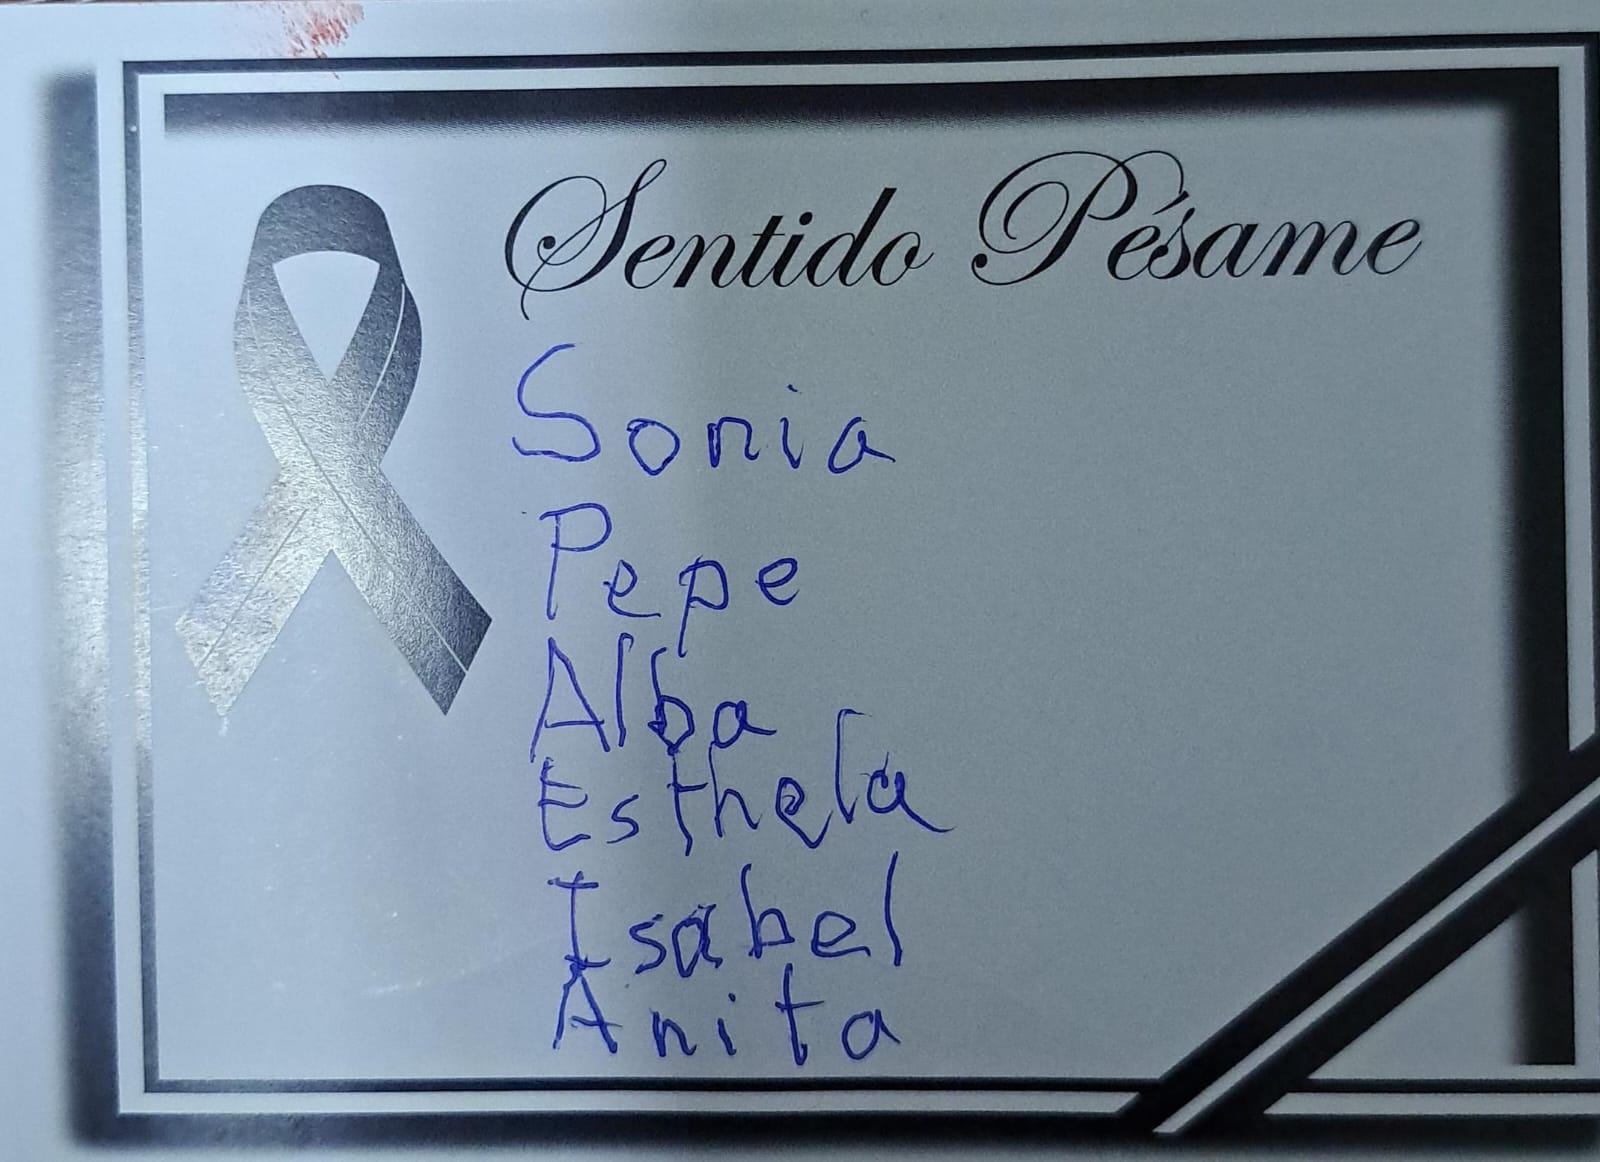 Sentido Pésame
Sonia
Pepe
Alba
Esthela
Isabel
Anita